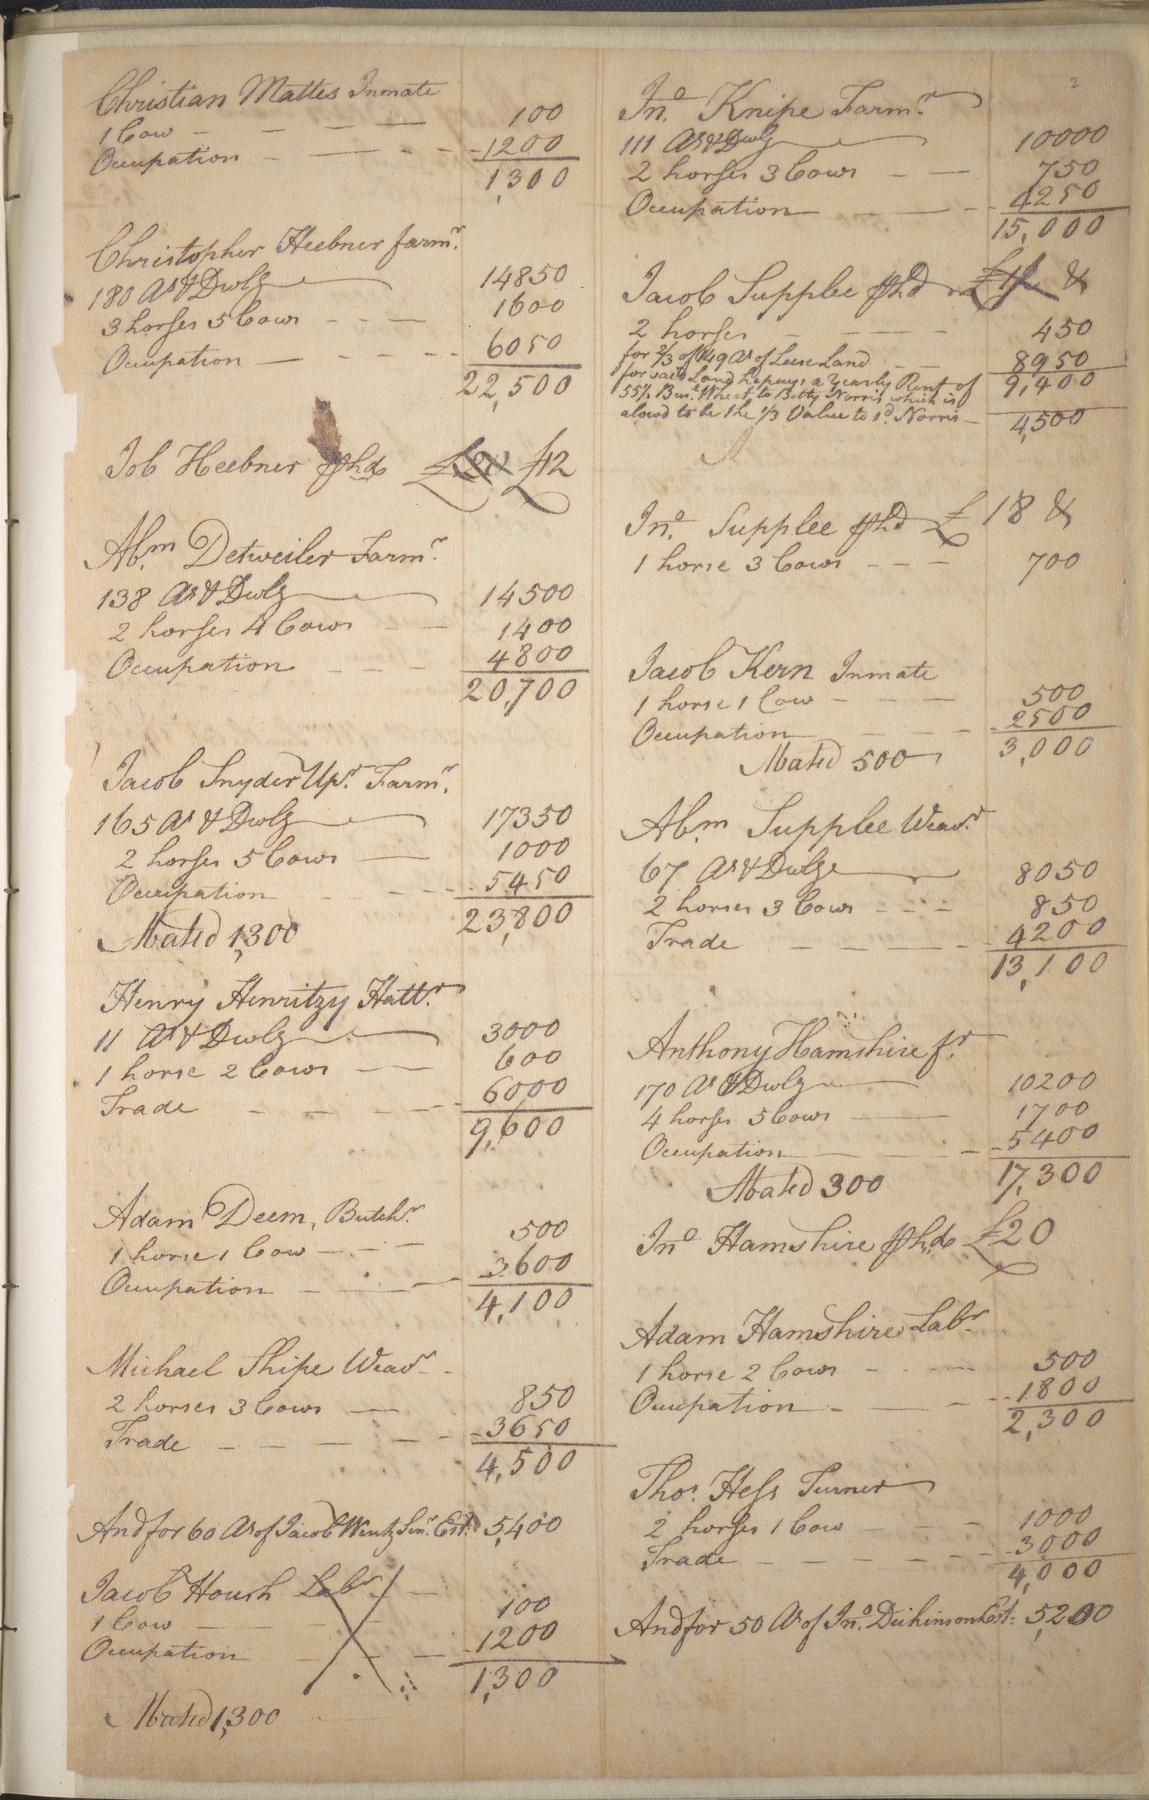 Christian Mattes Inmate
1 Cow - - - - 100
Occupation - - - - 1200
1,300
Christopher Heebner farmr.
180 As & Dwlg 14850
3 horses 5 Cows - - - 1600
Occupation - - - - 6050
22,500
Job Heebner £12
Abm. Detweiler Farmr.
138 As & Dwlg 14500
2 horses 4 Cows - - 1400
Occupation - - - 4800
20,700
Jacob Snyder Upr. Farmr.
165 As & Dwlg 17350
2 horses 5 Cows - 1000
Occupation - - - 5450
23,800
Abated 1,300
Henry Henritzy Hattr.
11 As & Dwlg 3000
1 horse 2 Cows - - 600
Trade - - - - 6000
9,600
Adam Deem, Butchr.
1 horse 1 Cow - - - 500
Occupation - - - 3600
4,100
Michael Shipe Weavr.
2 horses 3 Cows - 850
Trade - - - - 3650
4,500
And for 60 As of Jacob Wentz Senr. Est. 5,400
Jacob Housh Labr.
1 Cow - - - 100
Occupation - - - 1200
1,300
Abated 1,300
2
Jno. Knipe Farmr.
111 As & Dwlg 10000
2 horses 3 Cows - - 750
Occupation - - 4250
15,000
Jacob Supplee &
2 horses - - - 450
for 2/3 of 149 As of Land - - 8950
for said Land he pays a Yearly Rent of 9,400
55½ Bus. Wheat, to Betty Norris which is
alowd to be the 1/3 Value to sd. Norris - 4,500
Jno. Supplee £18 &
1 horse 3 Cows - - - 700
Jacob Kern Inmate
1 horse 1 Cow - - - 500
Occupation - - - 2500
3,000
Abated 500
Abm. Supplee Weavr.
67 As & Dwlge 8050
2 horses 3 Cows - - - 850
Trade - - - - 4200
13,100
Anthony Hamshire fr.
170 As & Dwlg 10200
4 horses 5 Cows - 1700
Occupation - - - 5400
17,300
Abated 300
Jno. Hamshire £20
Adam Hamshire Labr.
1 horse 2 Cows - - - 500
Occupation - - - 1800
2,300
Thos. Hess Turner
2 horses 1 Cow - - - 1000
Trade - - - - 3000
4,000
And for 50 As of Jno. Dickinson Est. 5,200